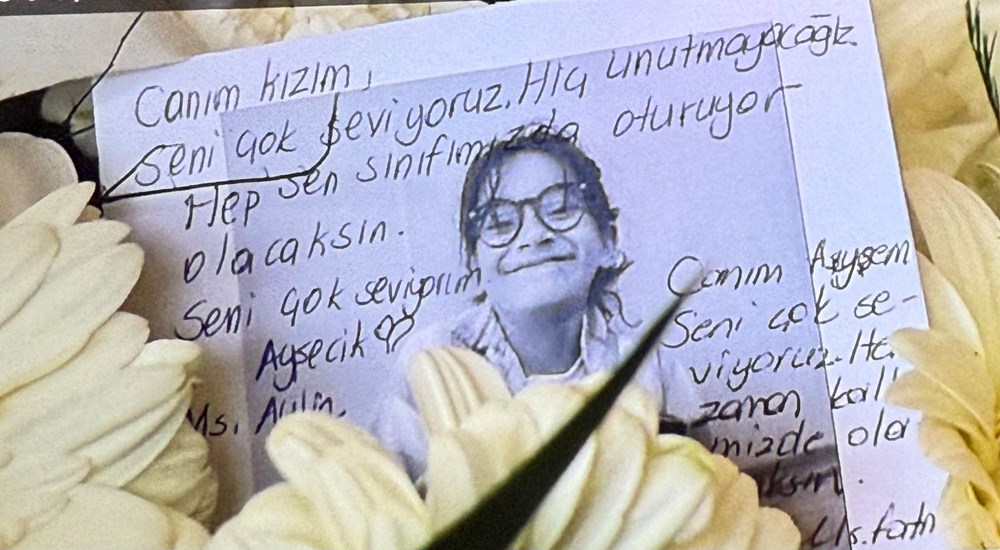 Canım kızım,
Seni çok seviyoruz. Hiç unutmayacağız
Hep sen sınıfımızda oturuyor
olacaksın.
Seni çok seviyorum
Ayşecik
Ms.
Canım Ayşem
Seni çok se-
viyoruz. He
zaman kal
mizde ola
ksın.